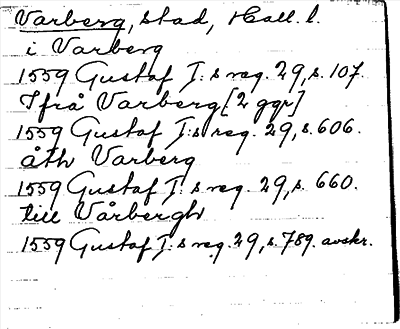 Varberg, stad, Hall. l.
i Varberg
1559 Gustaf I:s reg. 29, s. 107.
Ifrå Varberg [2 ggr]
1559 Gustaf I:s reg. 29, s. 606.
åth Varberg
1559 Gustaf I:s reg. 29, s. 660.
till Vårbergh
1559 Gustaf I:s reg. 29, s. 789. avskr.